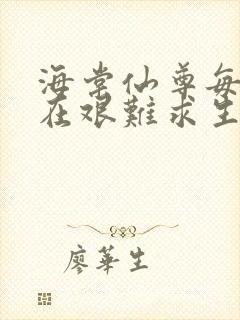 海棠仙尊每
在艰難求生
廖華生